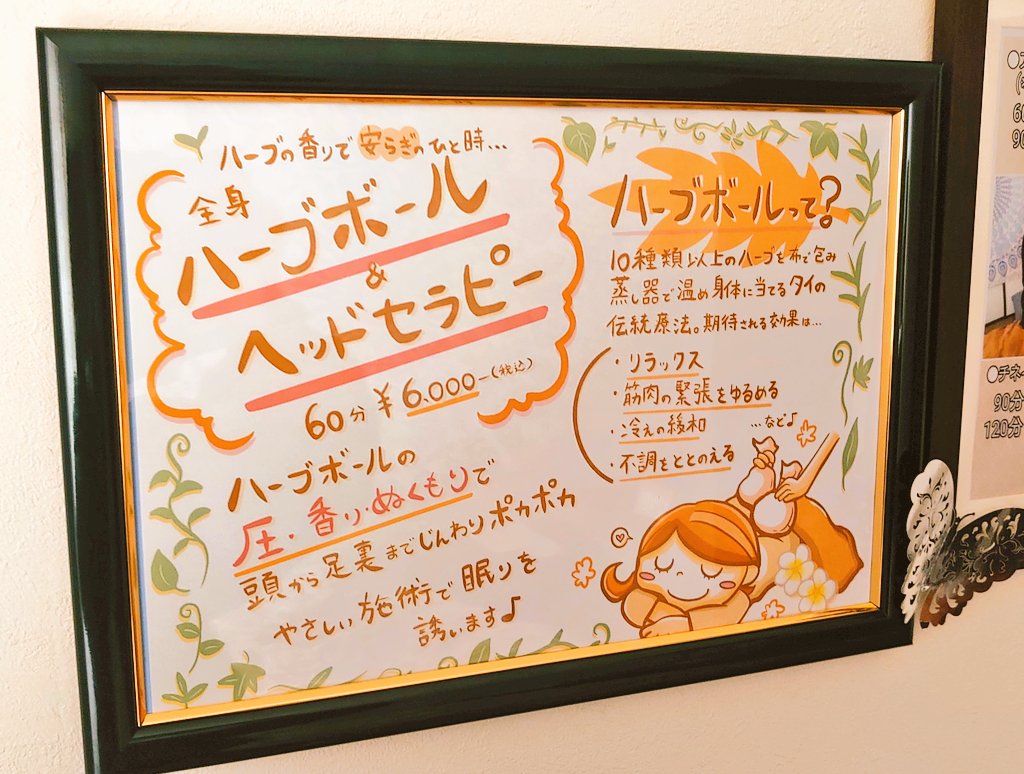 ハーブの香りで安らぎのひと時…
全身
ハーブボール
&
ヘッドセラピー
60分 ¥6,000-(税込)
ハーブボールの
圧・香り・ぬくもりで
頭から足裏までじんわりポカポカ
やさしい施術で眠りを
誘います♪
ハーブボールって?
10種類以上のハーブを布で包み
蒸し器で温め身体に当てるタイの
伝統療法。期待される効果は…
・リラックス
・筋肉の緊張をゆるめる
・冷えの緩和 …など♪
・不調をととのえる
●チネ
90分
120分